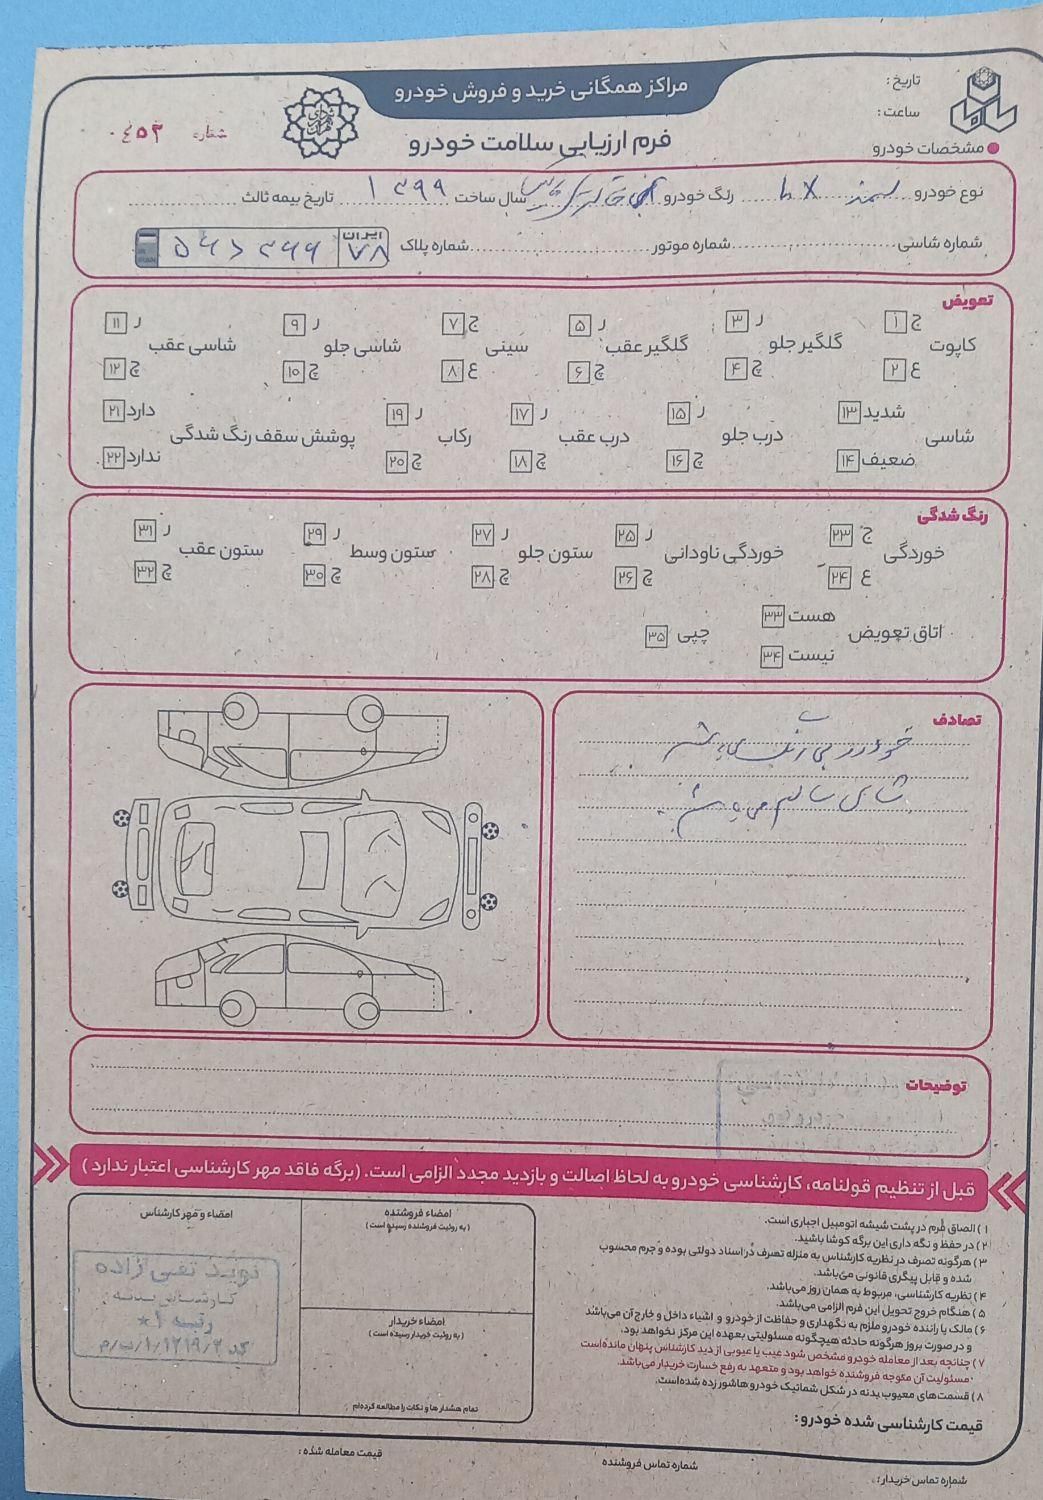 مراکز همگانی خرید و فروش خودرو
تاریخ :
ساعت :
فرم ارزیابی سلامت خودرو
شماره ۰۴۵۲
مشخصات خودرو
نوع خودرو سمند LX رنگ خودرو سال ساخت ۱۳۹۹ تاریخ بیمه ثالث
شماره شاسی شماره موتور شماره پلاک ایران ۷۸
تعویض
کاپوت ج ۱ ع ۲ گلگیر جلو ر ۳ چ ۴ گلگیر عقب ر ۵ چ ۶ سینی ج ۷ ع ۸ شاسی جلو ر ۹ چ ۱۰ شاسی عقب ر ۱۱ چ ۱۲
شاسی شدید ۱۳ ضعیف ۱۴ درب جلو ر ۱۵ چ ۱۶ درب عقب ر ۱۷ چ ۱۸ رکاب ر ۱۹ چ ۲۰ پوشش سقف رنگ شدگی دارد ۲۱ ندارد ۲۲
رنگ شدگی
خوردگی ج ۲۳ ع ۲۴ خوردگی ناودانی ر ۲۵ چ ۲۶ ستون جلو ر ۲۷ چ ۲۸ ستون وسط ر ۲۹ چ ۳۰ ستون عقب ر ۳۱ چ ۳۲
اتاق تعویض هست ۳۳ نیست ۳۴ چپی ۳۵
تصادف
خودرو بی رنگ می‌باشد
شاسی سالم می‌باشد
توضیحات
قبل از تنظیم قولنامه، کارشناسی خودرو به لحاظ اصالت و بازدید مجدد الزامی است. (برگه فاقد مهر کارشناسی اعتبار ندارد )
۱ ) الصاق فرم در پشت شیشه اتومبیل اجباری است.
۲ ) در حفظ و نگه داری این برگه کوشا باشید.
۳ ) هرگونه تصرف در نظریه کارشناس به منزله تصرف در اسناد دولتی بوده و جرم محسوب
شده و قابل پیگری قانونی می‌باشد.
۴ ) نظریه کارشناسی، مربوط به همان روز می‌باشد.
۵ ) هنگام خروج تحویل این فرم الزامی می‌باشد.
۶ ) مالک یا راننده خودرو ملزم به نگهداری و حفاظت از خودرو و اشیاء داخل و خارج آن می‌باشد
و در صورت بروز هرگونه حادثه هیچگونه مسئولیتی بعهده این مرکز نخواهد بود.
۷ ) چنانچه بعد از معامله خودرو مشخص شود عیب یا عیوبی از دید کارشناس پنهان مانده‌است
مسئولیت آن متوجه فروشنده خواهد بود و متعهد به رفع خسارت خریدار می‌باشد.
۸ ) قسمت‌های معیوب بدنه در شکل شماتیک خودرو هاشور زده شده‌است.
قیمت کارشناسی شده خودرو:
امضاء فروشنده
( به رویت فروشنده رسیده است )
امضاء خریدار
( به رویت خریدار رسیده است )
تمام هشدار ها و نکات را مطالعه کرده‌ام
امضاء و مهر کارشناس
نوید تقی زاده
کارشناس بدنه
رتبه ۱*
شماره تماس خریدار:
شماره تماس فروشنده
قیمت معامله شده :